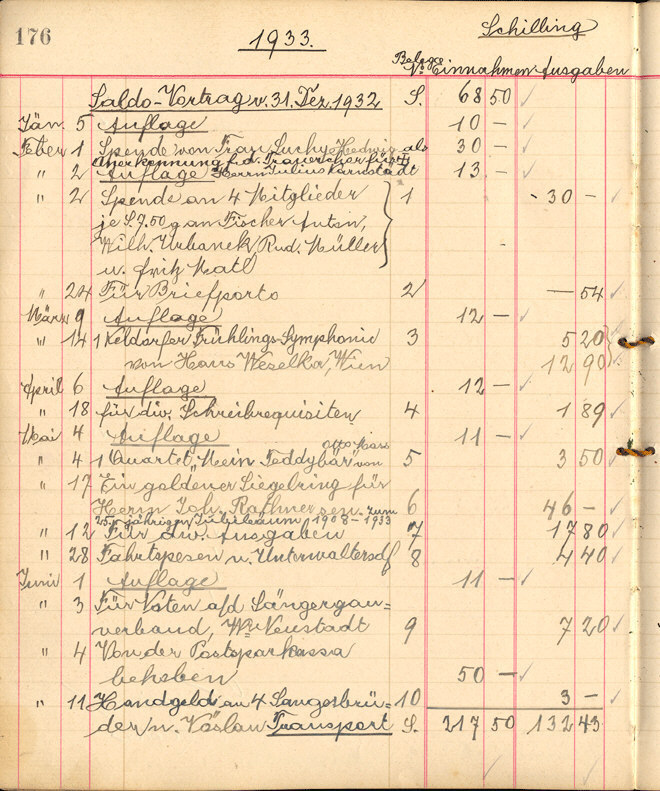 176
1933.
Schilling
Belege
Nr. Einnahmen Ausgaben
Saldo-Vortrag v. 31. Dez. 1932 S. 68 50
Jän. 5 Auflage 10 —
Feber 1 Spende von Frau Suchy Hedwig als 30 —
Anerkennung f. d. Trauerchor für
Herrn Julius Karnstädt
" 2 Auflage 13 —
" 2 Spende an 4 Mitglieder 1 30 —
je S. 7.50 g an Fischer Anton,
Wilh. Urbanek, Rud. Müller
u. Fritz Matl
" 24 Für Briefporto 2 — 54
März 9 Auflage 12 —
" 14 1 Keldorfer Frühlings-Symphonie 3 5 20
von Hans Weselka, Wien 12 90
April 6 Auflage 12 —
" 18 für div. Schreibrequisiten 4 1 89
Mai 4 Auflage 11 —
" 4 1 Quartet "Mein Teddybär" von Otto 5 3 50
" 17 Ein goldener Siegelring für
Herrn Joh. Rathner sen. zum 6 46 —
25 jährigen Jubiläum 1908–1933
" 12 Für div. Ausgaben 7 17 80
" 28 Fahrtspesen n. Unterwaltersdf 8 4 40
Juni 1 Auflage 11 —
" 3 Für Noten a/d Sängergau=
verband, Wr. Neustadt 9 7 20
" 4 Von der Postsparkassa
behoben 50 —
" 11 Handgeld an 4 Sangesbrü= 10 3 —
der n. Vöslau Transport S. 217 50 132 43